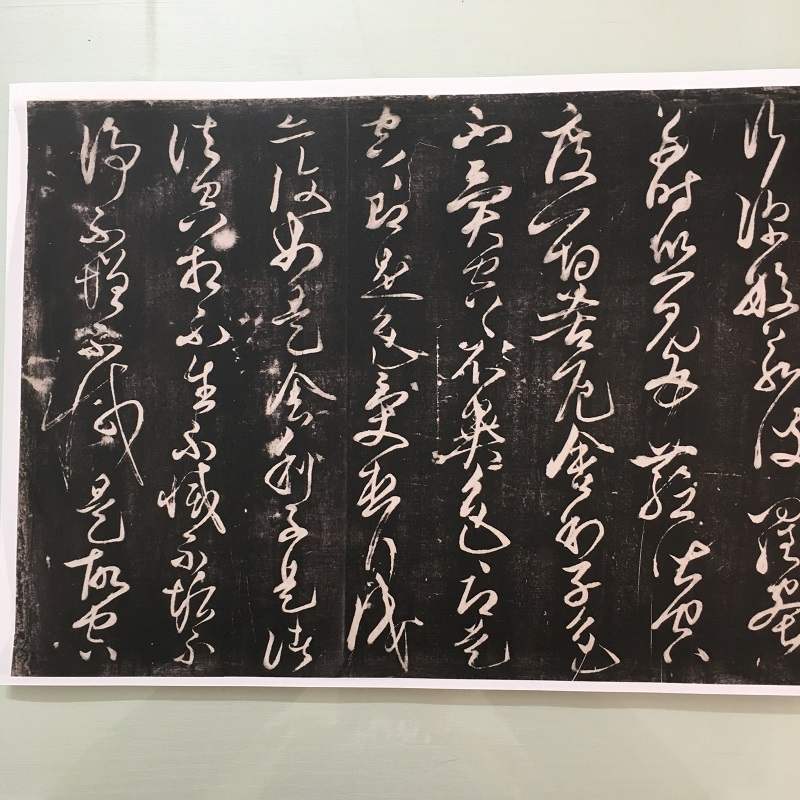 行深般若波羅蜜
多時照見五蘊皆空
度一切苦厄舍利子色
不異空空不異色色即是
空空即是色受想行識
亦復如是舍利子是諸
法空相不生不滅不垢不
淨不增不減是故空